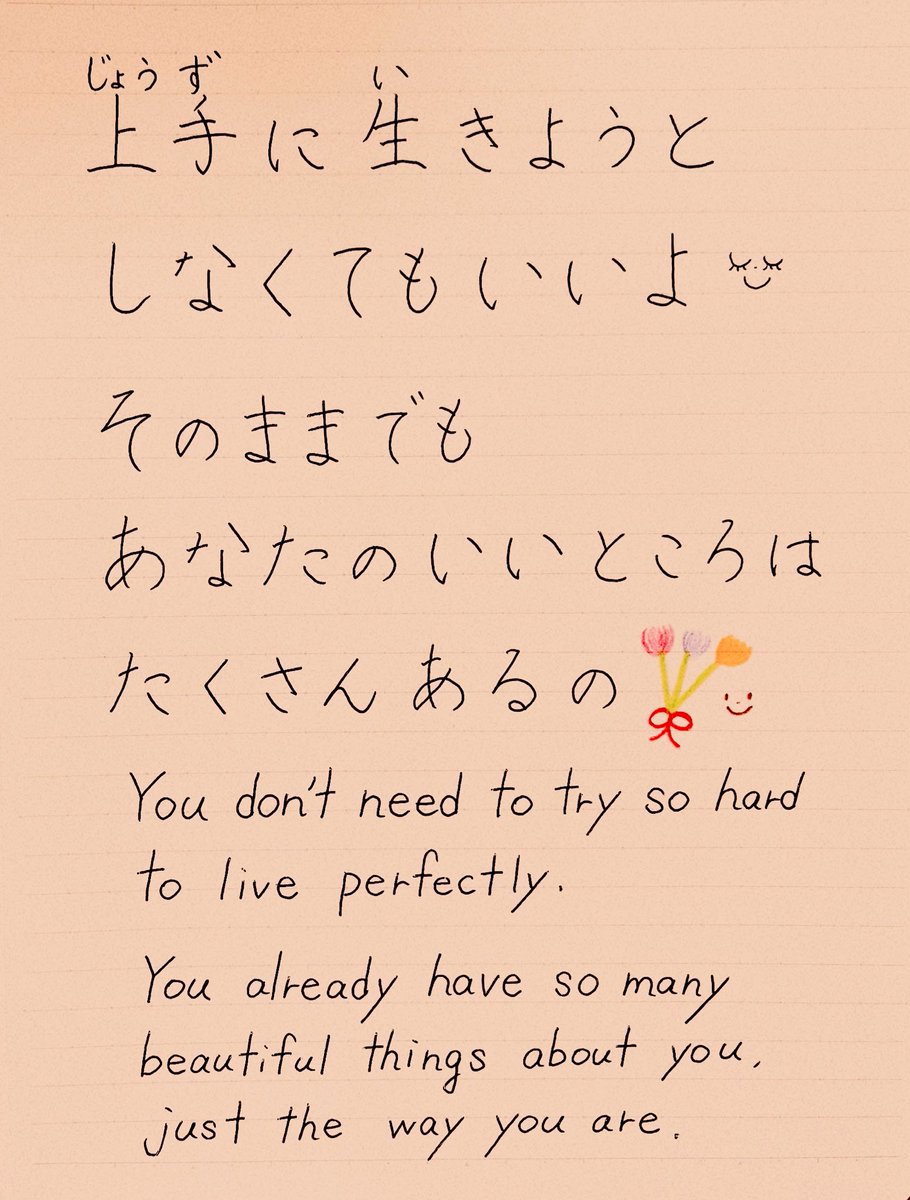 じょうず い
上手に生きようと
しなくてもいいよ
そのままでも
あなたのいいところは
たくさんあるの
You don't need to try so hard
to live perfectly.
You already have so many
beautiful things about you,
just the way you are.